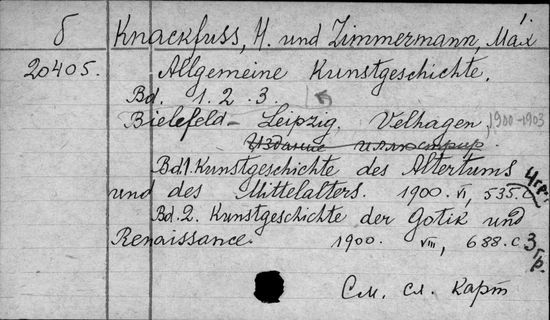 б Knackfuss, H. und Zimmermann, Max
20405. Allgemeine Kunstgeschichte.
Bd. 1. 2. 3.
Bielefeld - Leipzig, Velhagen, 1900-1903
Издание иллюстрир.
Bd. 1. Kunstgeschichte des Altertums
und des Mittelalters. 1900. VI, 535.с. 4.р.
Bd. 2. Kunstgeschichte der Gotik und
Renaissance. 1900. VIII, 688.с 3 р.
См. сл. карт